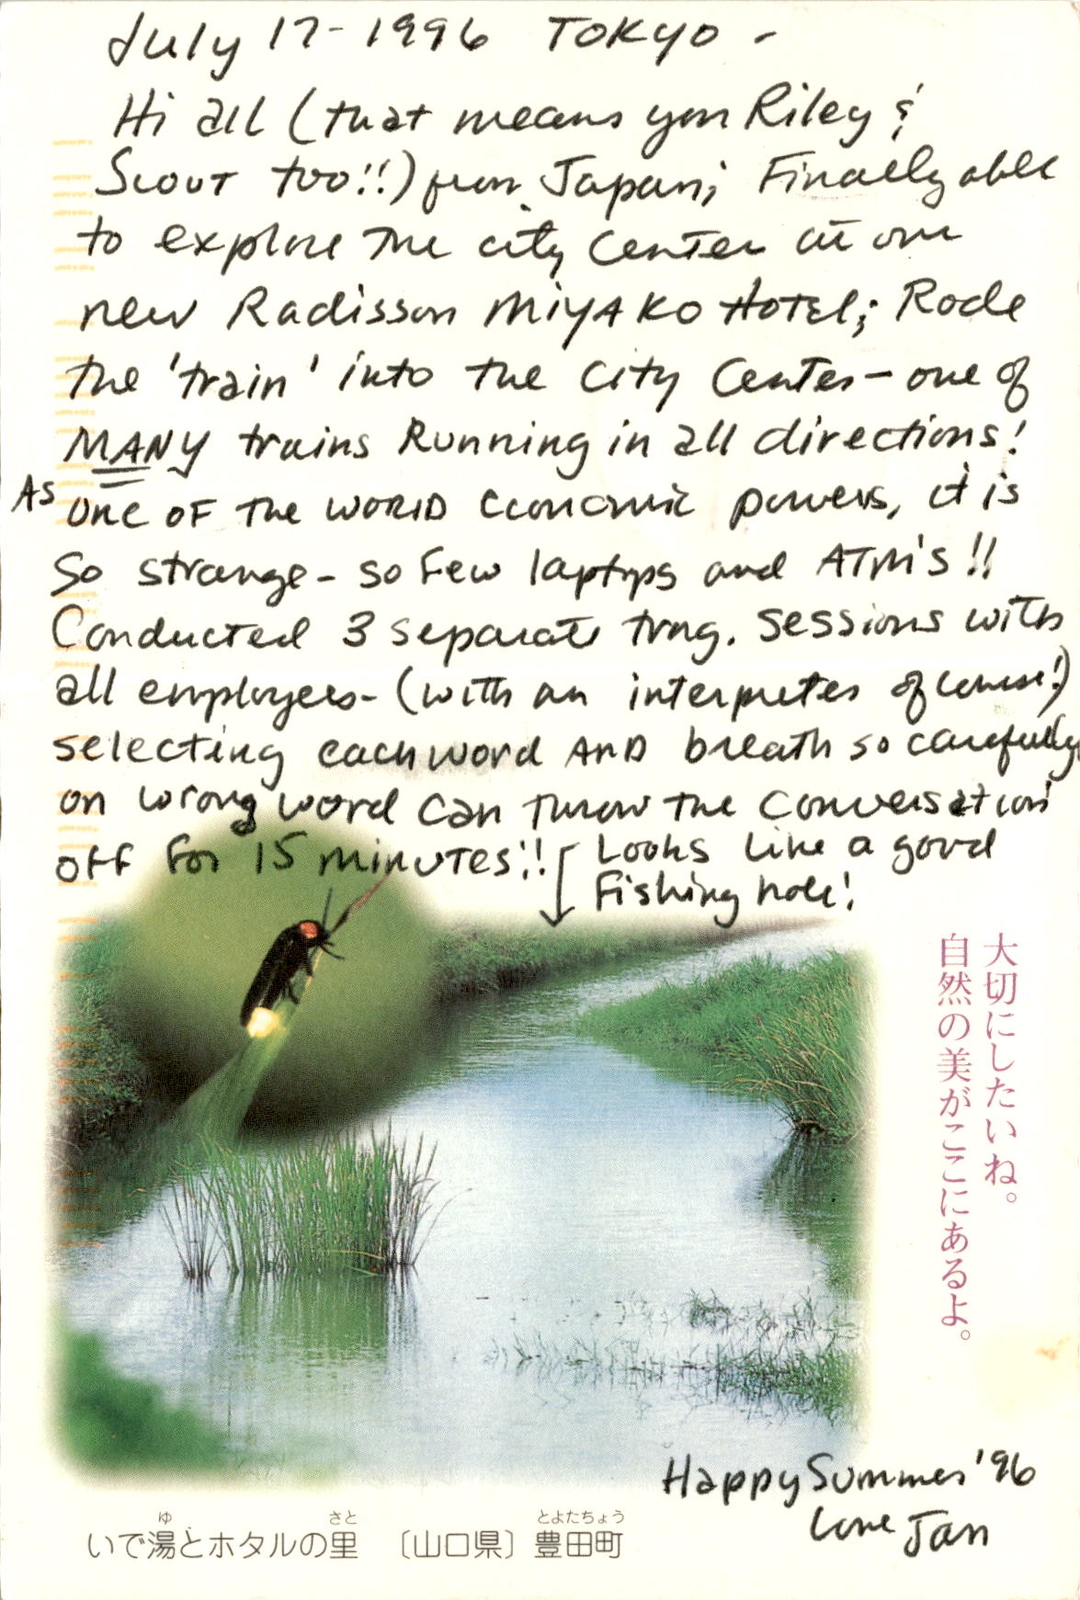 July 17-1996 TOKYO -
Hi all (that means you Riley &
Scout too!!) from Japan; Finally able
to explore the city center at our
new Radisson MIYAKO Hotel; Rode
the 'train' into the City Center - one of
MANY trains Running in all directions!
As one of the WORLD economic powers, it is
so strange - so few laptops and ATM's!!
Conducted 3 separate trng. sessions with
all employees - (with an interpreter of course!)
selecting each word AND breath so carefully
on wrong word can throw the conversation
off for 15 minutes!! Looks like a good
Fishing hole!
大切にしたいね。
自然の美がここにあるよ。
Happy Summer '96
Love Jan
ゆ さと とよたちょう
いで湯とホタルの里 〔山口県〕 豊田町